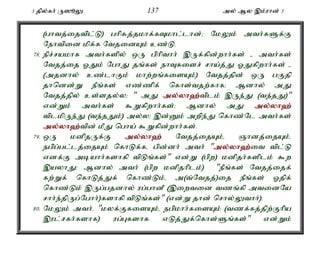 3 தில்கர் ருஸூலு 137 அல் ஆல இம்ரான் 3
(பாவத்தைவிட்டு) பரிசுத்தமாக்கவுமாட்டான்; மேலும் அவர்களுக்கு
நோவினை மிக்க வேதனையும் உண்டு.
78. நிச்சயமாக அவர்களில் ஒரு பிரிவார் இருக்கின்றார்கள் - அவர்கள்
வேதத்தை ஓதும் போது தங்கள் நாவுகளைச் சாய்த்து ஓதுகிறார்கள் -
(அதனால் உண்டாகும் மாற்றங்களையும்) வேதத்தின் ஒரு பகுதி
தானென்று நீங்கள் எண்ணிக் கொள்வதற்காக. ஆனால் அது
வேதத்தில் உள்ளதல்ல; " அது அல்லாஹ்விடம் இருந்து (வந்தது)"
என்றும் அவர்கள் கூறுகிறார்கள்; ஆனால் அது அல்லாஹ்
விடமிருந்து (வந்ததும்) அல்ல; இன்னும் அறிந்து கொண்டே அவர்கள்
அல்லாஹ்வின் மீது பொய் கூறுகின்றார்கள்.
79. ஒரு மனிதருக்கு அல்லாஹ் வேதத்தையும், ஞானத்தையும்,
நபிப்பட்டத்தையும் கொடுக்க, பின்னர் அவர் "அல்லாஹ்வை விட்டு
எனக்கு அடியார்களாகி விடுங்கள்" என்று (பிற) மனிதர்களிடம் கூற
இயலாது; ஆனால் அவர் (பிற மனிதரிடம்) "நீங்கள் வேதத்தைக்
கற்றுக் கொடுத்துக் கொண்டும், அ(வ்வேதத்)தை நீங்கள் ஓதிக்
கொண்டும் இருப்பதனால் ரப்பானீ (இறைவனை வணங்கி அவனையே
சார்ந்திருப்போர்)களாகி விடுங்கள்" (என்று தான் சொல்லுவார்).
80. மேலும் அவர், "மலக்குகளையும், நபிமார்களையும் (வணக்கத்திற்குரிய
இரட்சகர்களாக) ரப்புகளாக எடுத்துக்கொள்ளுங்கள்" என்றும்